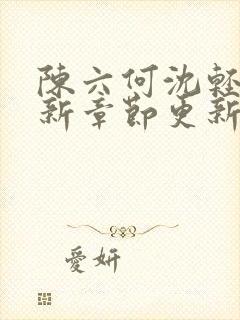 陳六何沈輕
新章節更新
愛妍